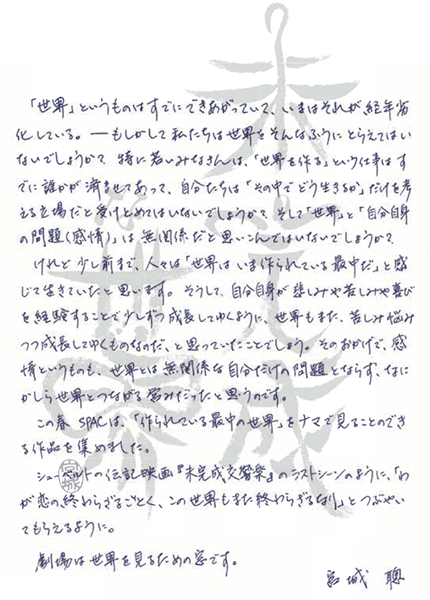 「世界」というものはすでにできあがっていて、いまはそれが経年劣
化している。——もしかして私たちは世界をそんなふうにとらえてはい
ないでしょうか？特に若いみなさんは、「世界を作る」という仕事はす
でに誰かが済ませてあって、自分たちは「その中でどう生きるか」だけを考
える立場だと受けとめてはいないでしょうか？そして「世界」と「自分自身
の問題(感情)」は無関係だと思いこんではいないでしょうか？
けれど少し前まで、人々は「世界はいま作られている最中だ」と感
じて生きていたと思います。そうして、自分自身が悲しみや苦しみや喜び
を経験することで少しずつ成長してゆくように、世界もまた、苦しみ悩み
つつ成長してゆくものなのだ、と思っていたことでしょう。そのおかげで、感
情というものも、世界とは無関係な自分だけの問題とならず、なに
がしら世界とつながる営みだったと思うのです。
この春SPACは、「作られている最中の世界」をナマで見ることのでき
る作品を集めました。
シューベルトの伝記映画『未完成交響楽』のラストシーンのように、「わ
が恋の終わらざるごとく、この世界もまた終わらざるなり」とつぶやい
てもらえるように。
劇場は世界を見るための窓です。
宮城 聰
未完成
世界